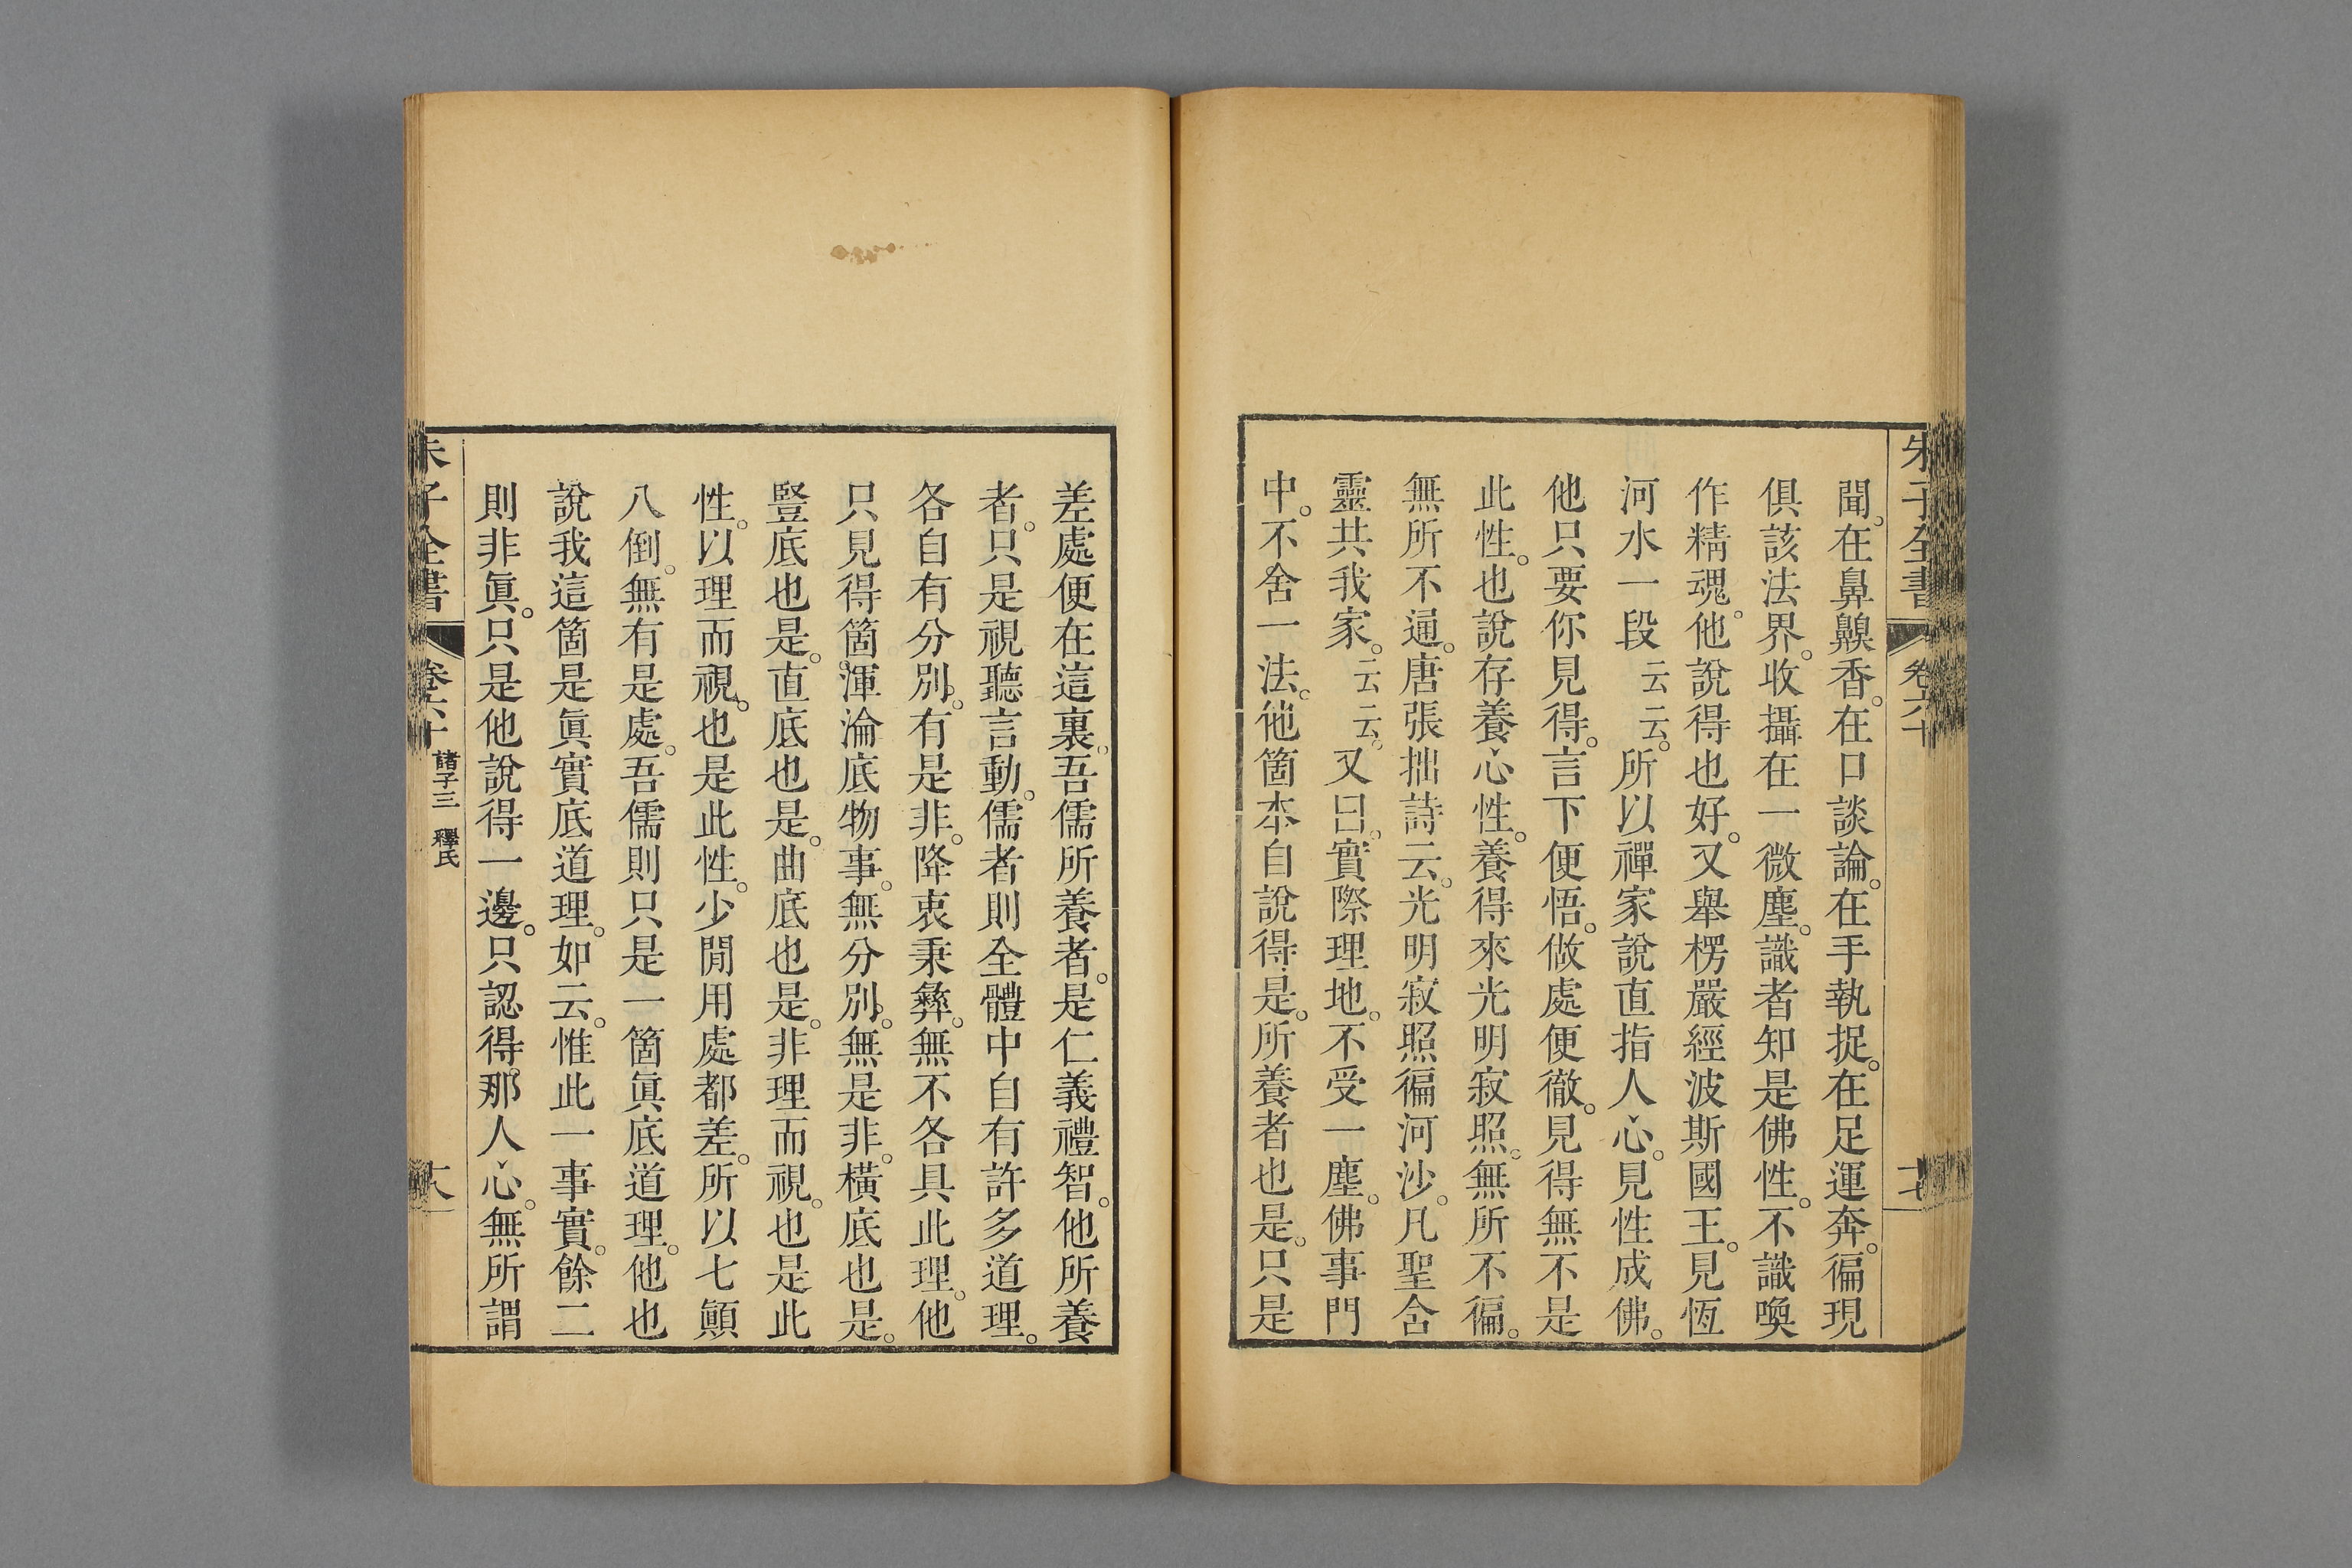 朱子全書 卷六十 十七
聞。在鼻齅香。在口談論。在手執捉。在足運奔。徧現
俱該法界。收攝在一微塵。識者知是佛性。不識喚
作精魂。他說得也好。又舉楞嚴經波斯國王。見恆
河水一段云云。所以禪家說直指人心。見性成佛。
他只要你見得。言下便悟。做處便徹。見得無不是
此性。也說存養心性。養得來光明寂照。無所不徧。
無所不通。唐張拙詩云。光明寂照徧河沙。凡聖含
靈共我家。云云。又曰。實際理地。不受一塵。佛事門
中。不舍一法。他箇本自說得是。所養者也是。只是
差處便在這裏。吾儒所養者。是仁義禮智。他所養
者。只是視聽言動。儒者則全體中自有許多道理。
各自有分別。有是非。降衷秉彝。無不各具此理。他
只見得箇渾淪底物事。無分別。無是非。橫底也是。
豎底也是。直底也是。曲底也是。非理而視。也是此
性。以理而視。也是此性。少閒用處都差。所以七顛
八倒。無有是處。吾儒則只是一箇眞底道理。他也
說我這箇是眞實底道理。如云。惟此一事實。餘二
則非眞。只是他說得一邊。只認得。那人心。無所謂
朱子全書 卷六十 諸子三 釋氏 十八